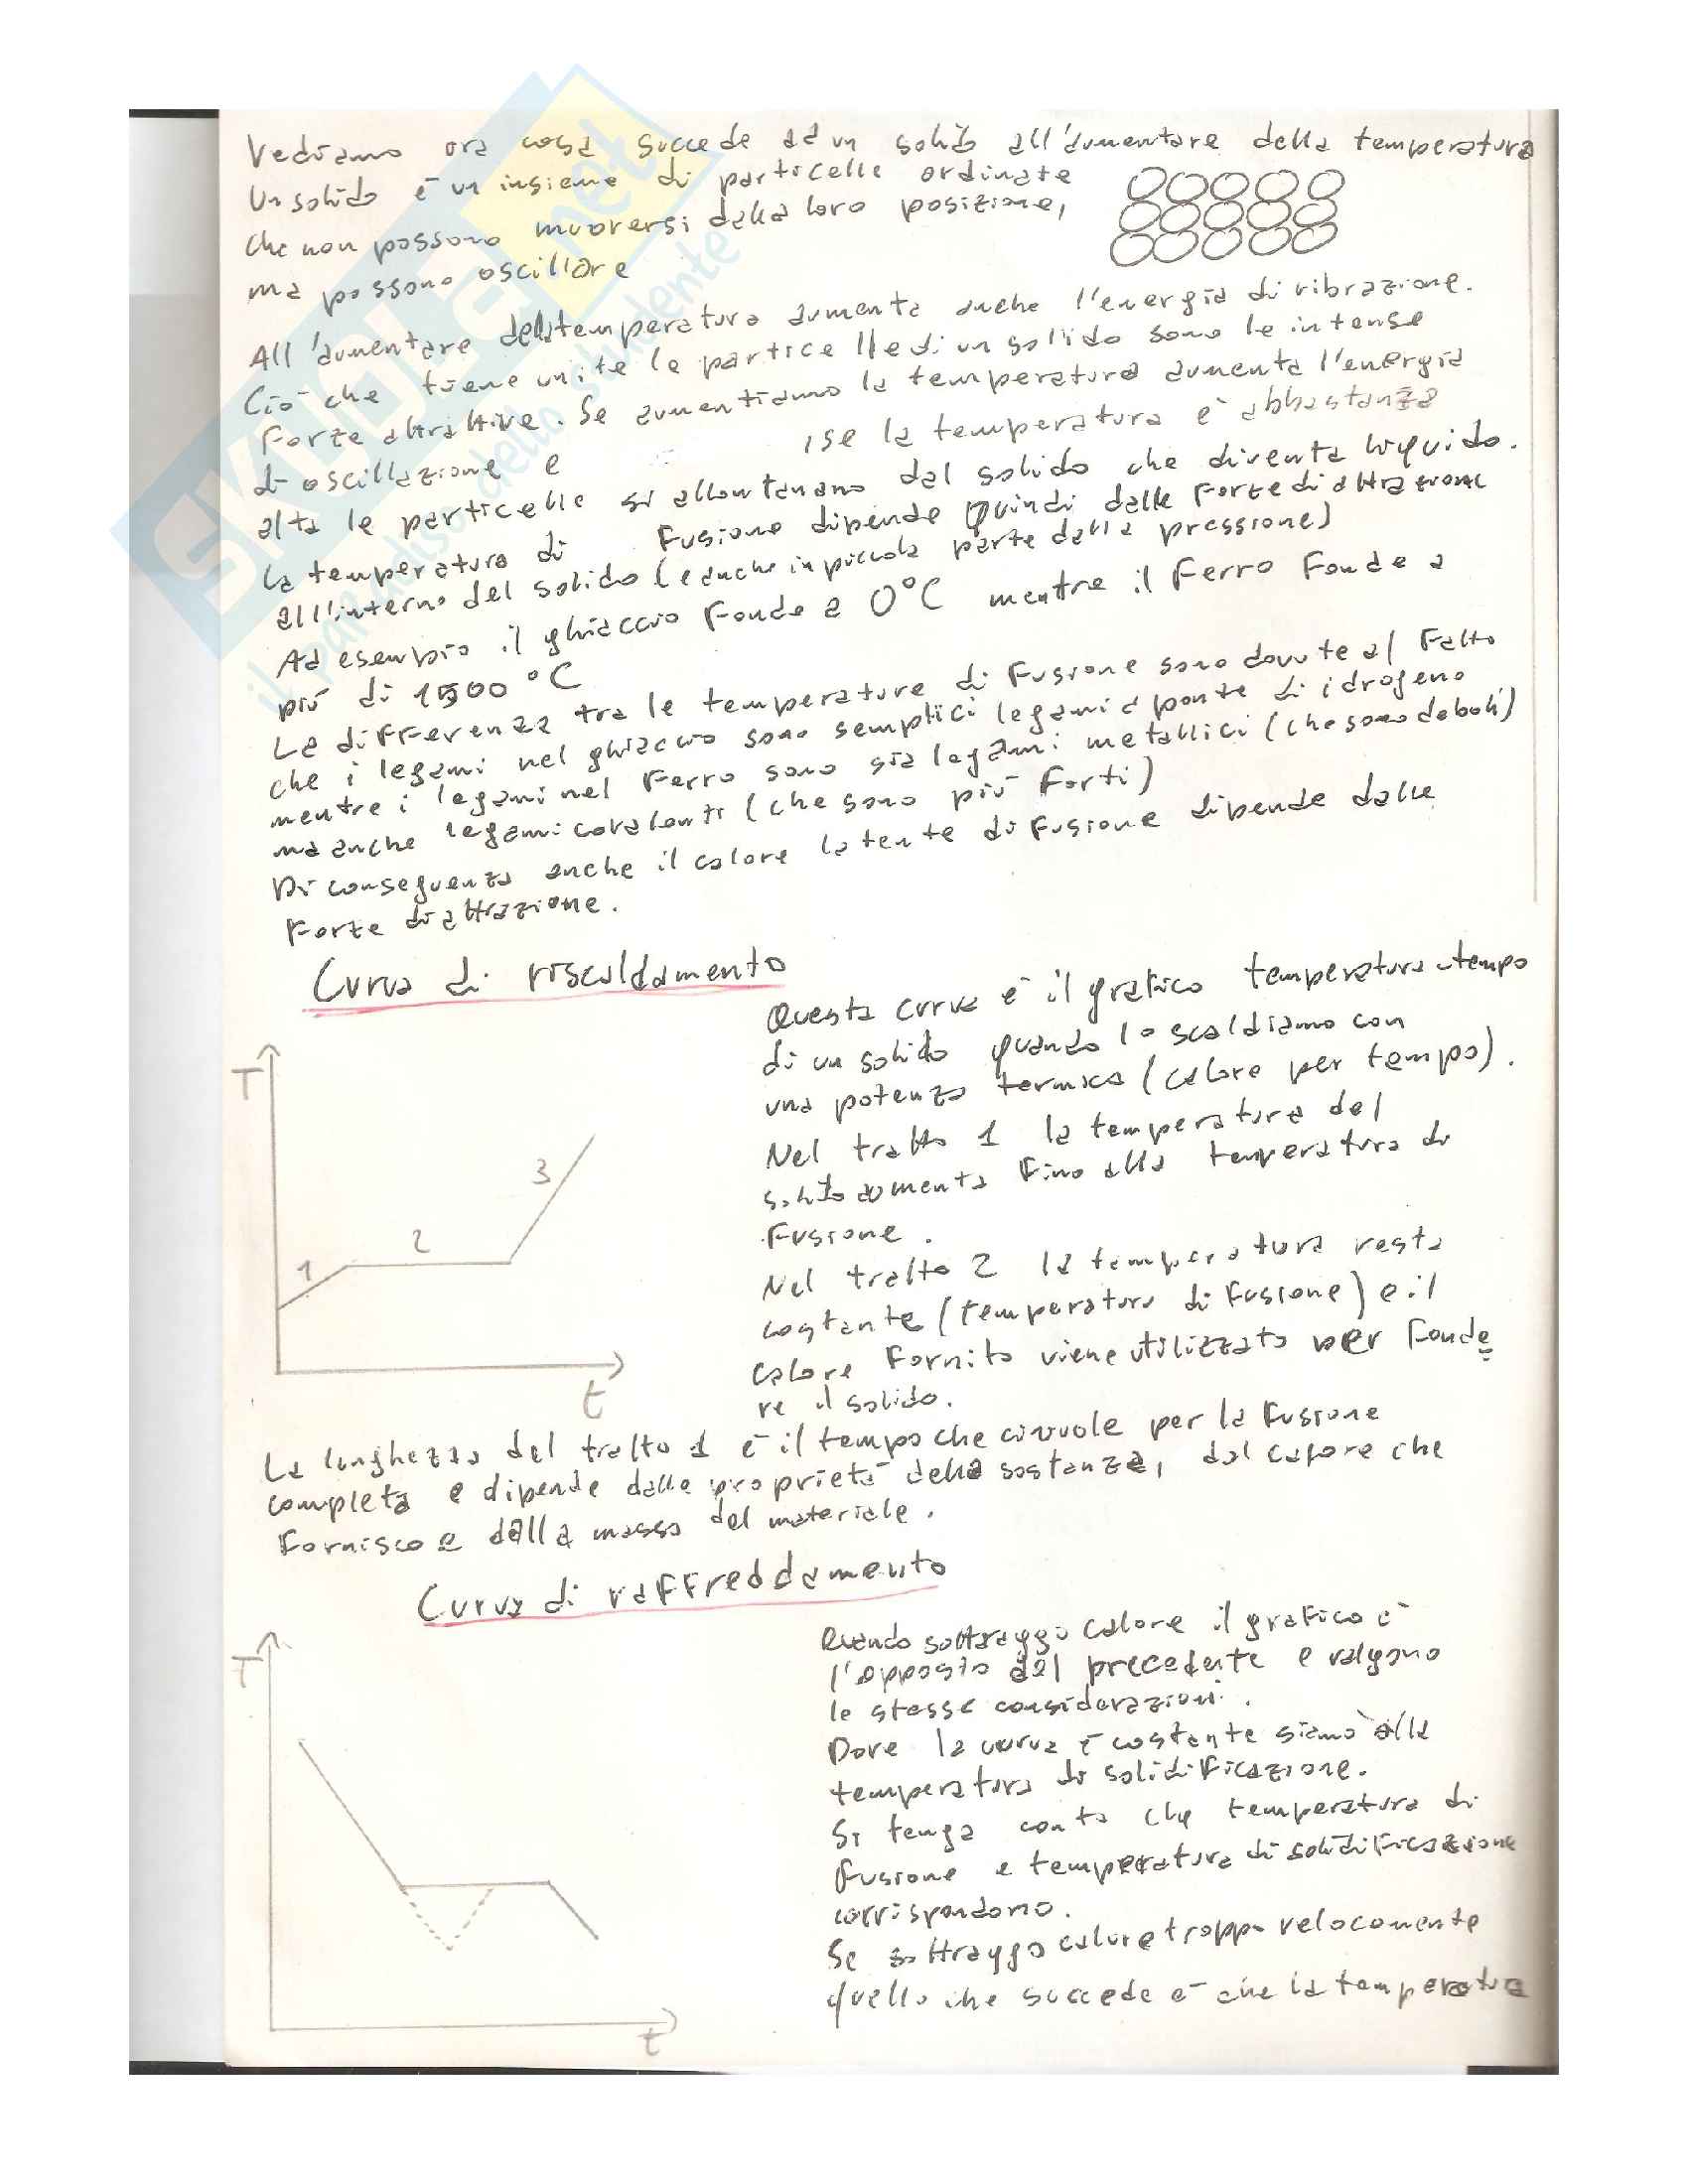 Vediamo ora cosa succede ad un solido all'aumentare della temperatura
Un solido è un insieme di particelle ordinate
che non possono muoversi dalla loro posizione,
ma possono oscillare
All'aumentare della temperatura aumenta anche l'energia di vibrazione.
Ciò che tiene unite le particelle di un solido sono le intense
forze attrattive. Se aumentiamo la temperatura aumenta l'energia
di oscillazione e , se la temperatura è abbastanza
alta le particelle si allontanano dal solido che diventa liquido.
La temperatura di fusione dipende quindi dalle forze di attrazione
all'interno del solido (e anche in piccola parte dalla pressione)
Ad esempio il ghiaccio fonde a 0°C mentre il ferro fonde a
più di 1500 °C
La differenza tra le temperature di fusione sono dovute al fatto
che i legami nel ghiaccio sono semplici legami a ponte di idrogeno
mentre i legami nel ferro sono sia legami metallici (che sono deboli)
ma anche legami covalenti (che sono più forti)
Di conseguenza anche il calore latente di fusione dipende dalle
forze di attrazione.
Curva di riscaldamento
Questa curva è il grafico temperatura-tempo
di un solido quando lo scaldiamo con
una potenza termica (calore per tempo).
Nel tratto 1 la temperatura del
solido aumenta fino alla temperatura di
fusione.
Nel tratto 2 la temperatura resta
costante (temperatura di fusione) e il
calore fornito viene utilizzato per fonde
re il solido.
T
1
2
3
t
La lunghezza del tratto 1 è il tempo che ci vuole per la fusione
completa e dipende dalle proprietà della sostanza, dal calore che
fornisco e dalla massa del materiale.
Curva di raffreddamento
Quando sottraggo calore il grafico è
l'opposto del precedente e valgono
le stesse considerazioni.
Dove la curva è costante siamo alla
temperatura di solidificazione.
Si tenga conto che temperatura di
fusione e temperatura di solidificazione
corrispondono.
Se sottraggo calore troppo velocemente
quello che succede è che la temperatura
T
t
SKUOLA.net
il paradiso dello studente